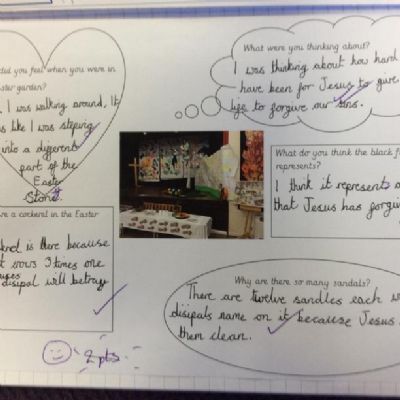 did you feel when you were in
ster garden?
I was walking around, it
s like I was steping
into a different
part of the
Easter
Story.
What were you thinking about?
I was thinking about how hard
have been for Jesus to give
life to forgive our sins.
What do you think the black f
represents?
I think it represents
that Jesus has forgiv
re a cockerel in the Easter
erel is there because
it rows 3 times one
disipal will betray
Why are there so many sandals?
There are twelve sandles each w
disipals name on it because Jesus
them clean.
2 pts